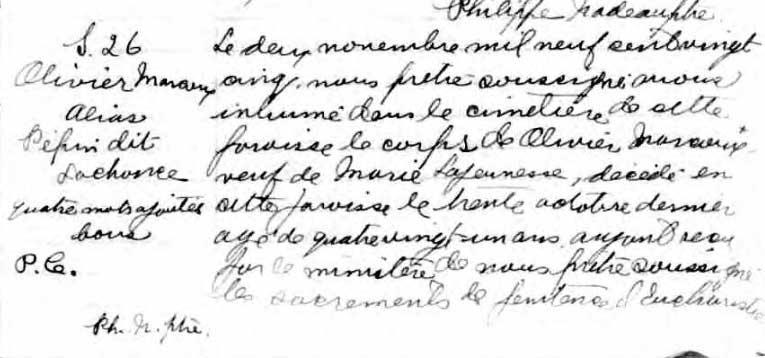 Philippe Nadeau ptre.
S. 26
Olivier Marceux
Alias
Pépin dit
Lachance
quatre mots ajoutés
bons
P. C.
Ph. N. ptre.
Le deux novembre mil neuf cent vingt
cinq, nous prêtre soussigné avons
inhumé dans le cimetière de cette
paroisse le corps de Olivier Marceux
veuf de Marie Lajeunesse, décédé en
cette paroisse le trente octobre dernier
agé de quatre vingt-un ans ayant reçu
par le ministère de nous prêtre soussigné
les sacrements de penitence d'Eucharistie